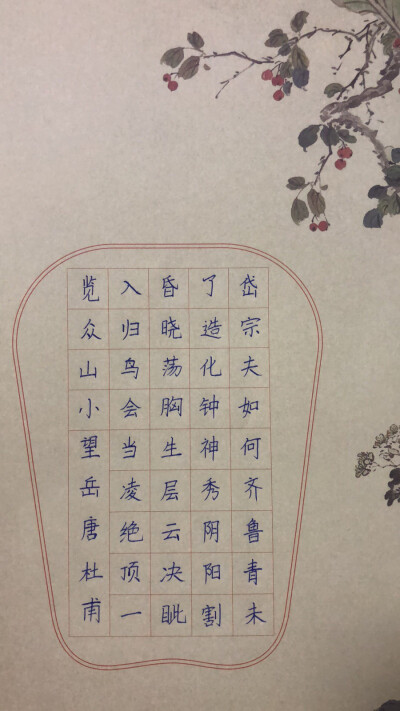 岱宗夫如何齐鲁青未
了造化钟神秀阴阳割
昏晓荡胸生层云决眦
入归鸟会当凌绝顶一
览众山小望岳唐杜甫